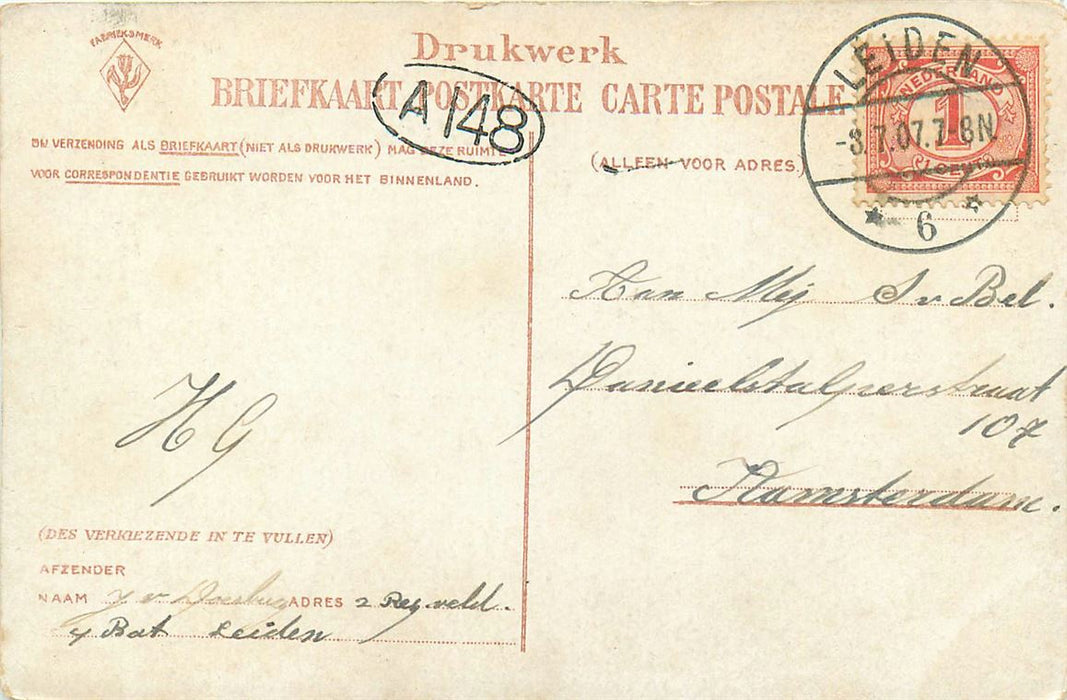 FABRIEKSMERK
Drukwerk
BRIEFKAART POSTKARTE CARTE POSTALE
A 148
BIJ VERZENDING ALS BRIEFKAART (NIET ALS DRUKWERK) MAG DEZE RUIMTE
VOOR CORRESPONDENTIE GEBRUIKT WORDEN VOOR HET BINNENLAND.
(ALLEEN VOOR ADRES.)
LEIDEN
-8.7.07.7-8N.
6
NEDERLAND
1
1 CENT
Aan Mej S v Bel.
Danieelstalperstraat
107
Aamsterdam.
H G
(DES VERKIEZENDE IN TE VULLEN)
AFZENDER
NAAM J v Doesburg ADRES 2 Reg veld.
4 Bat Leiden